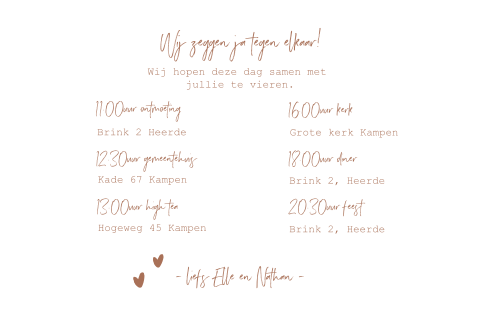 Wij zeggen ja tegen elkaar!
Wij hopen deze dag samen met
jullie te vieren.
11:00uur ontmoeting
Brink 2 Heerde
12:30uur gemeentehuis
Kade 67 Kampen
13:00uur high tea
Hogeweg 45 Kampen
16:00uur kerk
Grote kerk Kampen
18:00uur diner
Brink 2, Heerde
20:30uur feest
Brink 2, Heerde
- liefs Elle en Nathan -